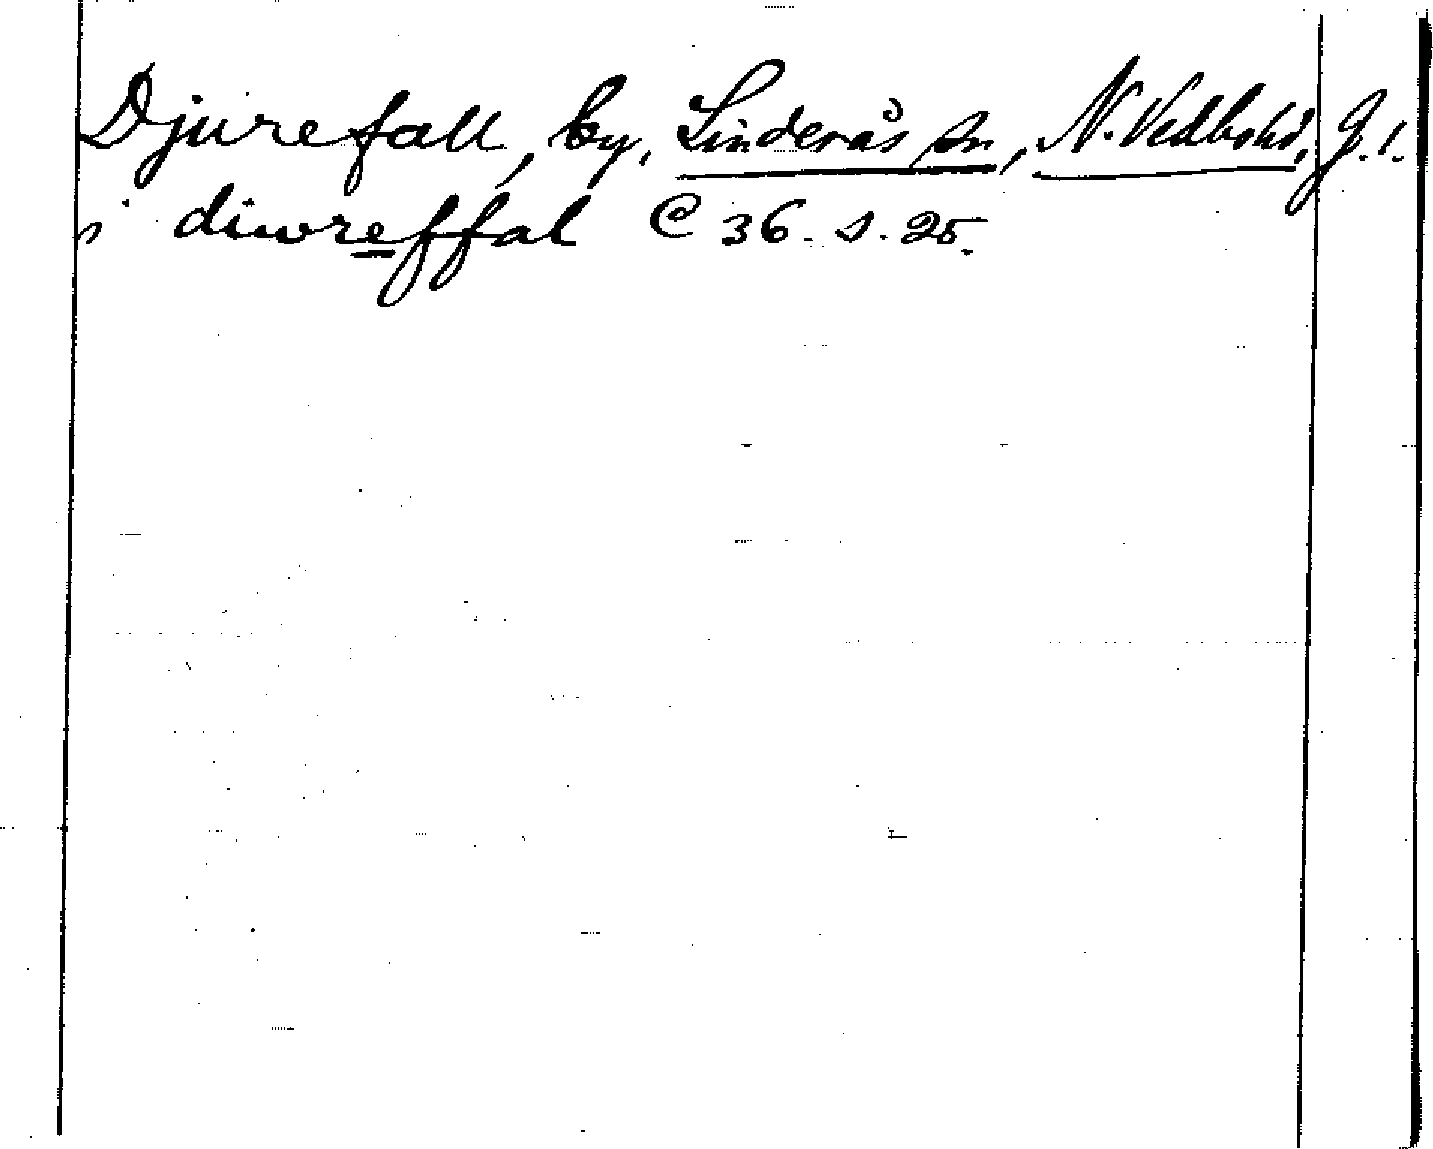 Djurefall, by, Linderås sn, N. Vedbohd, J. l.
i diwreffal C 36. s. 25.